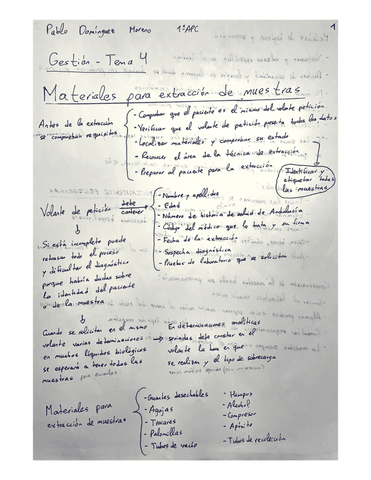 Pablo Domínguez Moreno 1ºAPC 1
Gestión - Tema 4
Materiales para extracción de muestras
Antes de la extracción se comprueban requisitos
- Comprobar que el paciente es el mismo del volante petición
- Verificar que el volante de petición presenta todos los datos
- Localizar materiales y comprobar su estado
- Reconocer el área de la técnica de extracción
- Preparar al paciente para la extracción
Identificar y
etiquetar todas
las muestras
Volante de petición debe contener
- Nombre y apellidos
- Edad
- Número de historia de salud de Andalucía
- Código del médico que lo trata y su firma
- Fecha de la extracción
- Sospecha diagnóstica
- Pruebas de laboratorio que se solicitan
Si está incompleto puede
retrasar todo el proceso
y dificultar el diagnóstico
porque habría dudas sobre
la identidad del paciente
o de la muestra
Cuando se soliciten en el mismo
volante varias determinaciones
en muchos líquidos biológicos
se esperará a tener todas las
muestras
En determinaciones analíticas
seriadas debe constar en el
volante la hora en que
se realizan y el tipo de sobrecarga
Materiales para
extracción de muestras
- Guantes desechables
- Agujas
- Trocares
- Palomillas
- Tubos de vacío
- Hisopos
- Alcohol
- Compresor
- Apósito
- Tubos de recolección